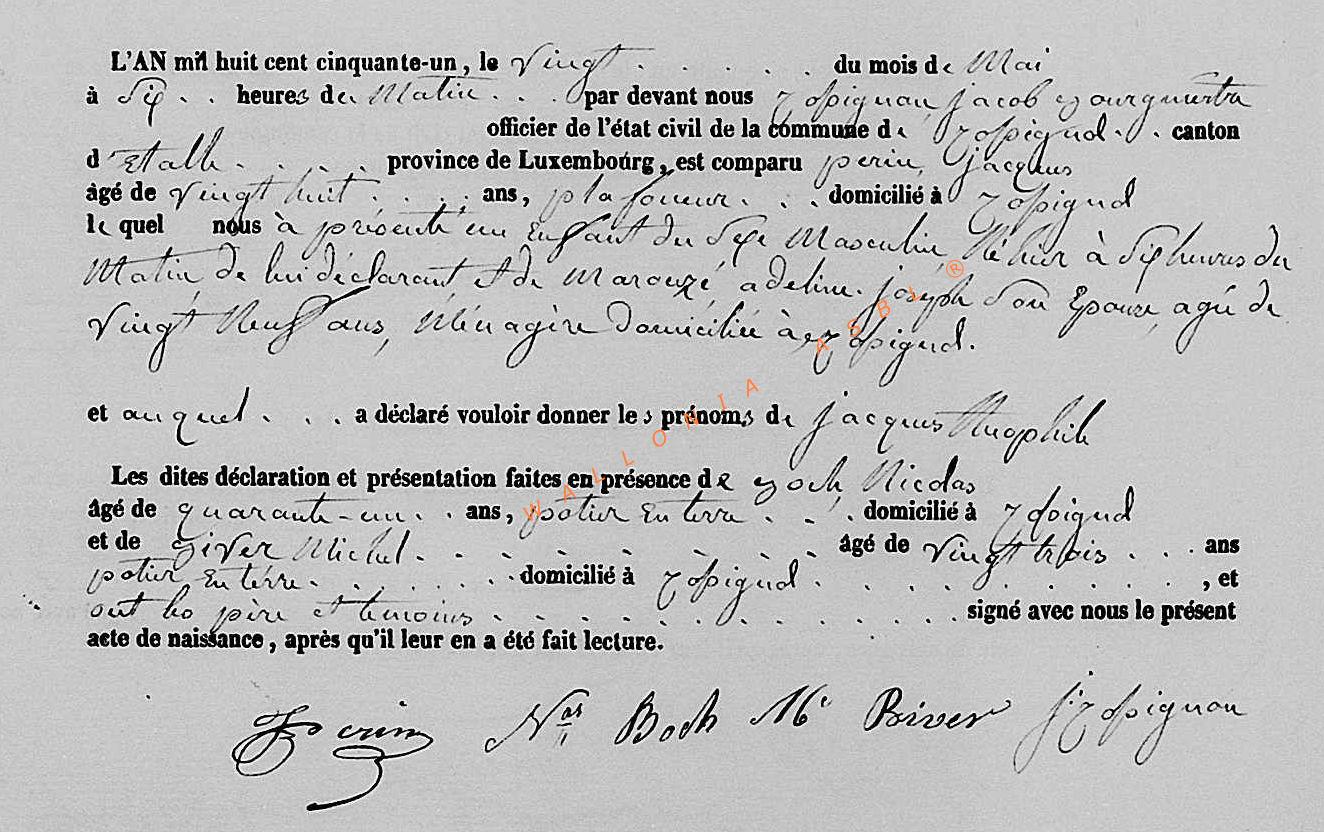 L'AN mil huit cent cinquante-un, le vingt . . . . . du mois de Mai
à Six . . heures du Matin . . . par devant nous Rossignon jacob Bourguemtre
officier de l'état civil de la commune de Rossignol . . canton
d'Etalle . . . . province de Luxembourg, est comparu perin, jacques
âgé de vingt huit . . . . ans, plafoneur . . . domicilié à Rossignol
le quel nous à présenté un Enfant du Sexe Masculin, Né hier à Six heures du
Matin de lui déclarant et de Marouzé adeline joseph Son Epouse, agée de
vingt Neuf ans, Ménagère domiciliée à Rossignol.
et auquel . . . a déclaré vouloir donner les prénoms de jacques théophile
Les dites déclaration et présentation faites en présence de Boch Nicolas
âgé de quarante-un . . ans, potier En terre . . . domicilié à Rossignol
et de Michel . . . . . . . . . âgé de vingt trois . . . ans
potier En terre . . . . . . domicilié à Rossignol . . . . . . . . . . , et
ont les père et temoins . . . . . . . . . . . . signé avec nous le présent
acte de naissance, après qu'il leur en a été fait lecture.
Perin Nas Boch Mel j. Rossignon
WALLONIA ASBL ®